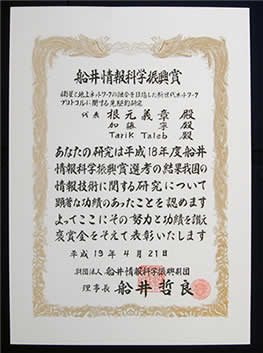 船井情報科学振興賞
衛星と地上ネットワークの融合を目指した新世代ネットワーク
プロトコルに関する先駆的研究
代表 根元義章 殿
加藤 寧 殿
Tarik Taleb 殿
あなたの研究は平成18年度船井
情報科学振興賞選考の結果我国の
情報技術に関する研究について
顕著な功績のあったことを認めます
よってここにその努力と功績を讃え
褒賞金をそえて表彰いたします
平成19年4月21日
財団法人 船井情報科学振興財団
理事長 船井哲良